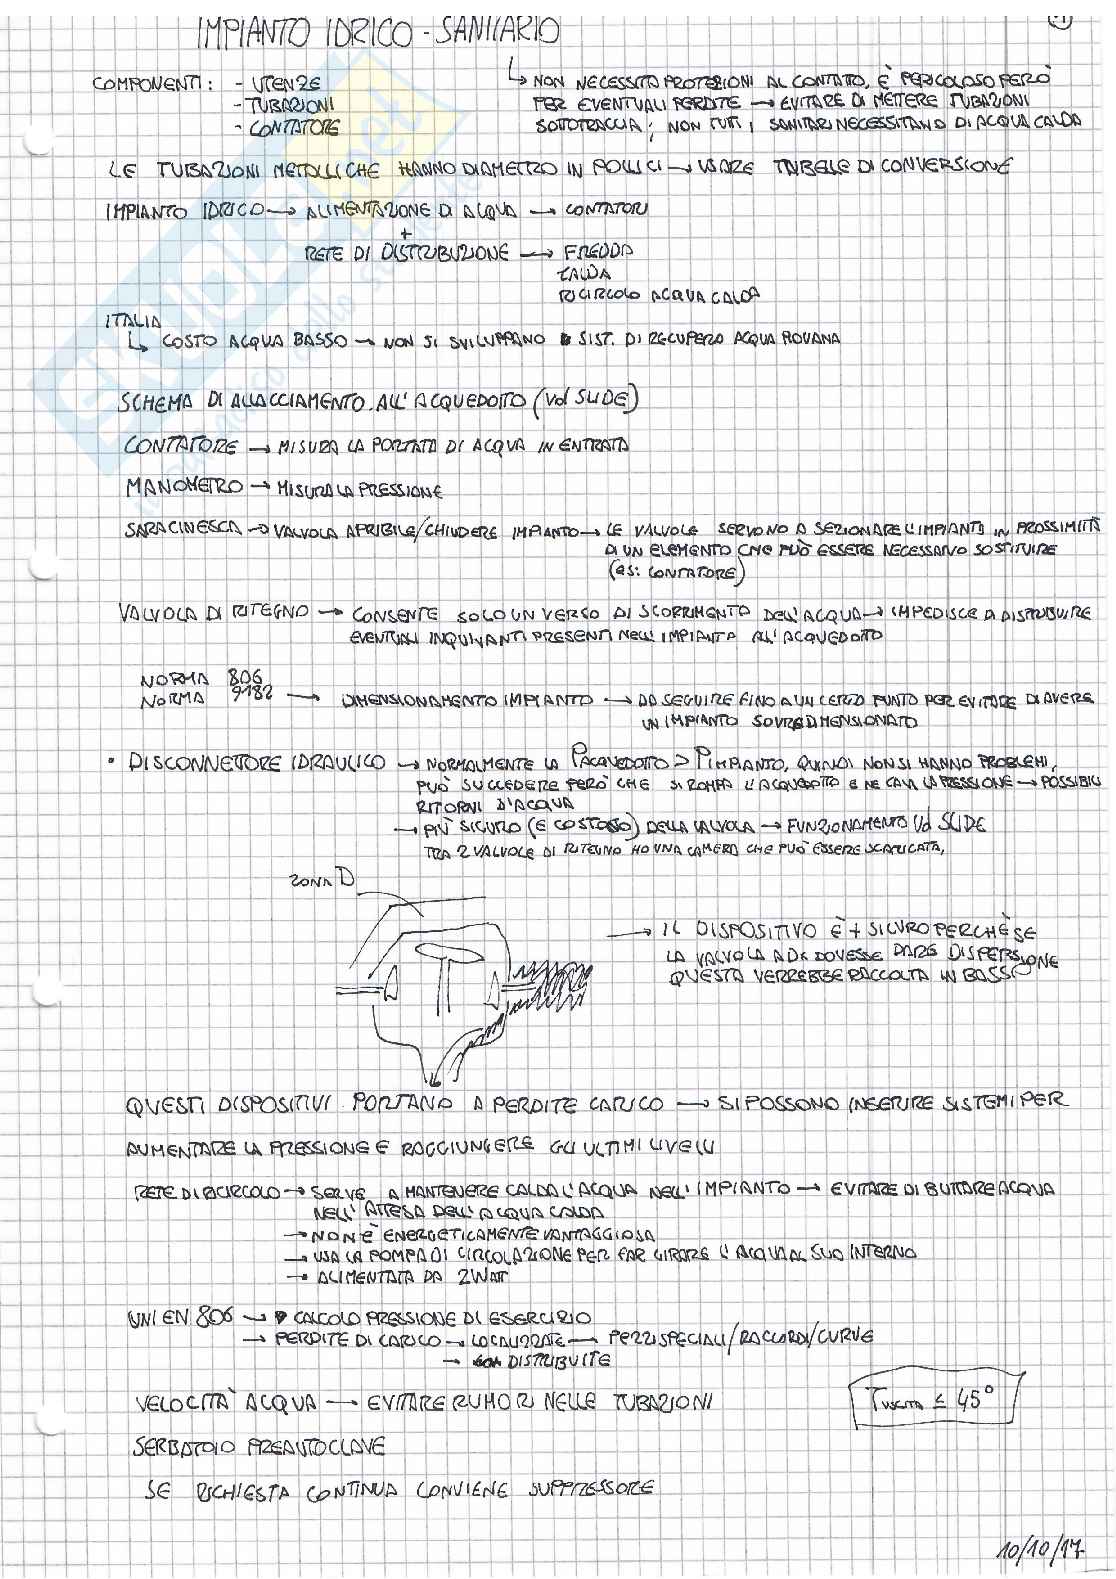 IMPIANTO IDRICO - SANITARIO
COMPONENTI: - UTENZE
- TUBAZIONI
- CONTATORE
↳ NON NECESSITA PROTEZIONI AL CONTATO, È PERICOLOSO PERÒ
PER EVENTUALI PERDITE → EVITARE DI METTERE TUBAZIONI
SOTTOTRACCIA; NON TUTTI I SANITARI NECESSITANO DI ACQUA CALDA
LE TUBAZIONI METALLICHE HANNO DIAMETRO IN POLLICI → USARE TABELLE DI CONVERSIONE
IMPIANTO IDRICO → ALIMENTAZIONE DI ACQUA → CONTATORI
+
RETE DI DISTRIBUZIONE → FREDDA
CALDA
RICIRCOLO ACQUA CALDA
ITALIA
↳ COSTO ACQUA BASSO → NON SI SVILUPPANO SIST. DI RECUPERO ACQUA PIOVANA
SCHEMA DI ALLACCIAMENTO ALL'ACQUEDOTTO (Vd SLIDE)
CONTATORE → MISURA LA PORTATA DI ACQUA IN ENTRATA
MANOMETRO → MISURA LA PRESSIONE
SARACINESCA → VALVOLA APRIBILE/CHIUDERE IMPIANTO → LE VALVOLE SERVONO A SEZIONARE L'IMPIANTO IN PROSSIMITÀ
DI UN ELEMENTO CHE PUÒ ESSERE NECESSARIO SOSTITUIRE
(es: CONTATORE)
VALVOLA DI RITEGNO → CONSENTE SOLO UN VERSO DI SCORRIMENTO DELL'ACQUA → IMPEDISCE DI DISTRIBUIRE
EVENTUALI INQUINANTI PRESENTI NELL'IMPIANTO ALL'ACQUEDOTTO
NORMA 806
NORMA 9182 → DIMENSIONAMENTO IMPIANTO → DA SEGUIRE FINO A UN CERTO PUNTO PER EVITARE DI AVERE
UN IMPIANTO SOVREDIMENSIONATO
• DISCONNETTORE IDRAULICO → NORMALMENTE LA PACQUEDOTTO > PIMPIANTO, QUINDI NON SI HANNO PROBLEMI,
PUÒ SUCCEDERE PERÒ CHE SI ROMPA L'ACQUEDOTTO E NE CALI LA PRESSIONE → POSSIBILI
RITORNI D'ACQUA
→ PIÙ SICURO (E COSTOSO) DELLA VALVOLA → FUNZIONAMENTO Vd SLIDE
TRA 2 VALVOLE DI RITEGNO HO UNA CAMERA CHE PUÒ ESSERE SCARICATA,
ZONA D
→ IL DISPOSITIVO È + SICURO PERCHÈ SE
LA VALVOLA A DX DOVESSE DARE DISPERSIONE
QUESTA VERREBBE RACCOLTA IN BASSO
QUESTI DISPOSITIVI PORTANO A PERDITE CARICO → SI POSSONO INSERIRE SISTEMI PER
AUMENTARE LA PRESSIONE E RAGGIUNGERE GLI ULTIMI LIVELLI
RETE DI RICIRCOLO → SERVE A MANTENERE CALDA L'ACQUA NELL'IMPIANTO → EVITARE DI BUTTARE ACQUA
NELL'ATTESA DELL'ACQUA CALDA
→ NON È ENERGETICAMENTE VANTAGGIOSA
→ USA LA POMPA DI CIRCOLAZIONE PER FAR GIRARE L'ACQUA AL SUO INTERNO
→ ALIMENTATA DA 2 WATT
UNI EN 806 → CALCOLO PRESSIONE DI ESERCIZIO
→ PERDITE DI CARICO → LOCALIZZATE → PEZZI SPECIALI/RACCORDI/CURVE
→ DISTRIBUITE
VELOCITÀ ACQUA → EVITARE RUMORI NELLE TUBAZIONI
TUSCITA ≤ 45°
SERBATOIO PREAUTOCLAVE
SE RICHIESTA CONTINUA CONVIENE SUPPRESSORE
10/10/17